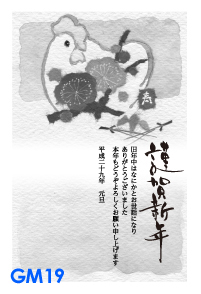 寿
謹賀新年
旧年中はなにかとお世話になり
ありがとうございました
本年もどうぞよろしくお願い申し上げます
平成二十九年 元旦
GM19